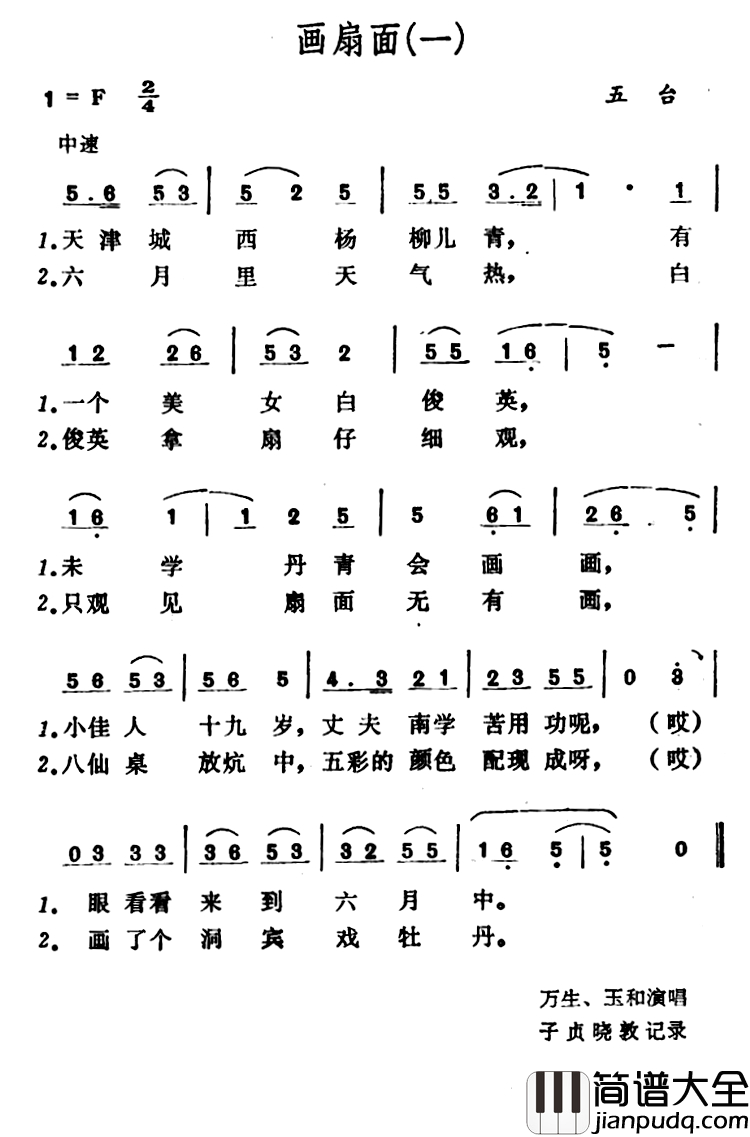 画扇面(一)
1 = F 2/4 五台
中速
5.6 53 | 5 2 5 | 55 3.2 | 1 · 1 |
1.天津城西杨柳儿青，有
2.六月里天气热，白
12 26 | 53 2 | 55 16 | 5 — |
1.一个美女白俊英，
2.俊英拿扇仔细观，
16 1 | 1 2 5 | 5 61 | 26 5 |
1.未学丹青会画画，
2.只观见扇面无有画，
56 53 | 56 5 | 4.3 21 | 23 55 | 0 3 |
1.小佳人十九岁，丈夫南学苦用功呢，（哎）
2.八仙桌放炕中，五彩的颜色配现成呀，（哎）
03 33 | 36 53 | 32 55 | 16 5 | 5 0 ‖
1. 眼看看来到六月中。
2. 画了个洞宾戏牡丹。
万生、玉和演唱
子贞晓敦记录
简谱大全
jianpudq.com